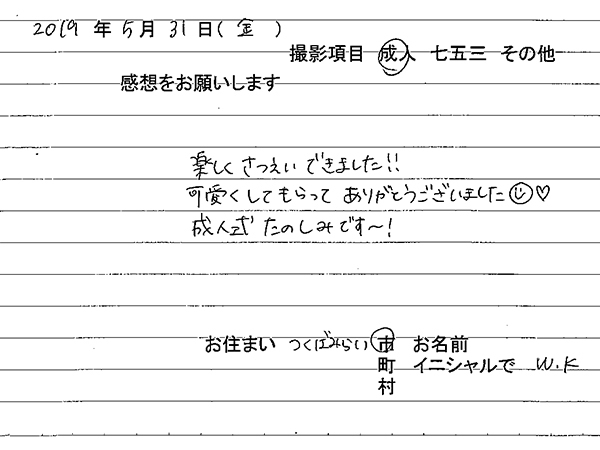 2019年5月31日(金)
撮影項目 成人 七五三 その他
感想をお願いします
楽しくさつえいできました!!
可愛くしてもらってありがとうございました☺♡
成人式たのしみです〜!
お住まい つくばみらい 市 お名前
町 イニシャルで W.K
村